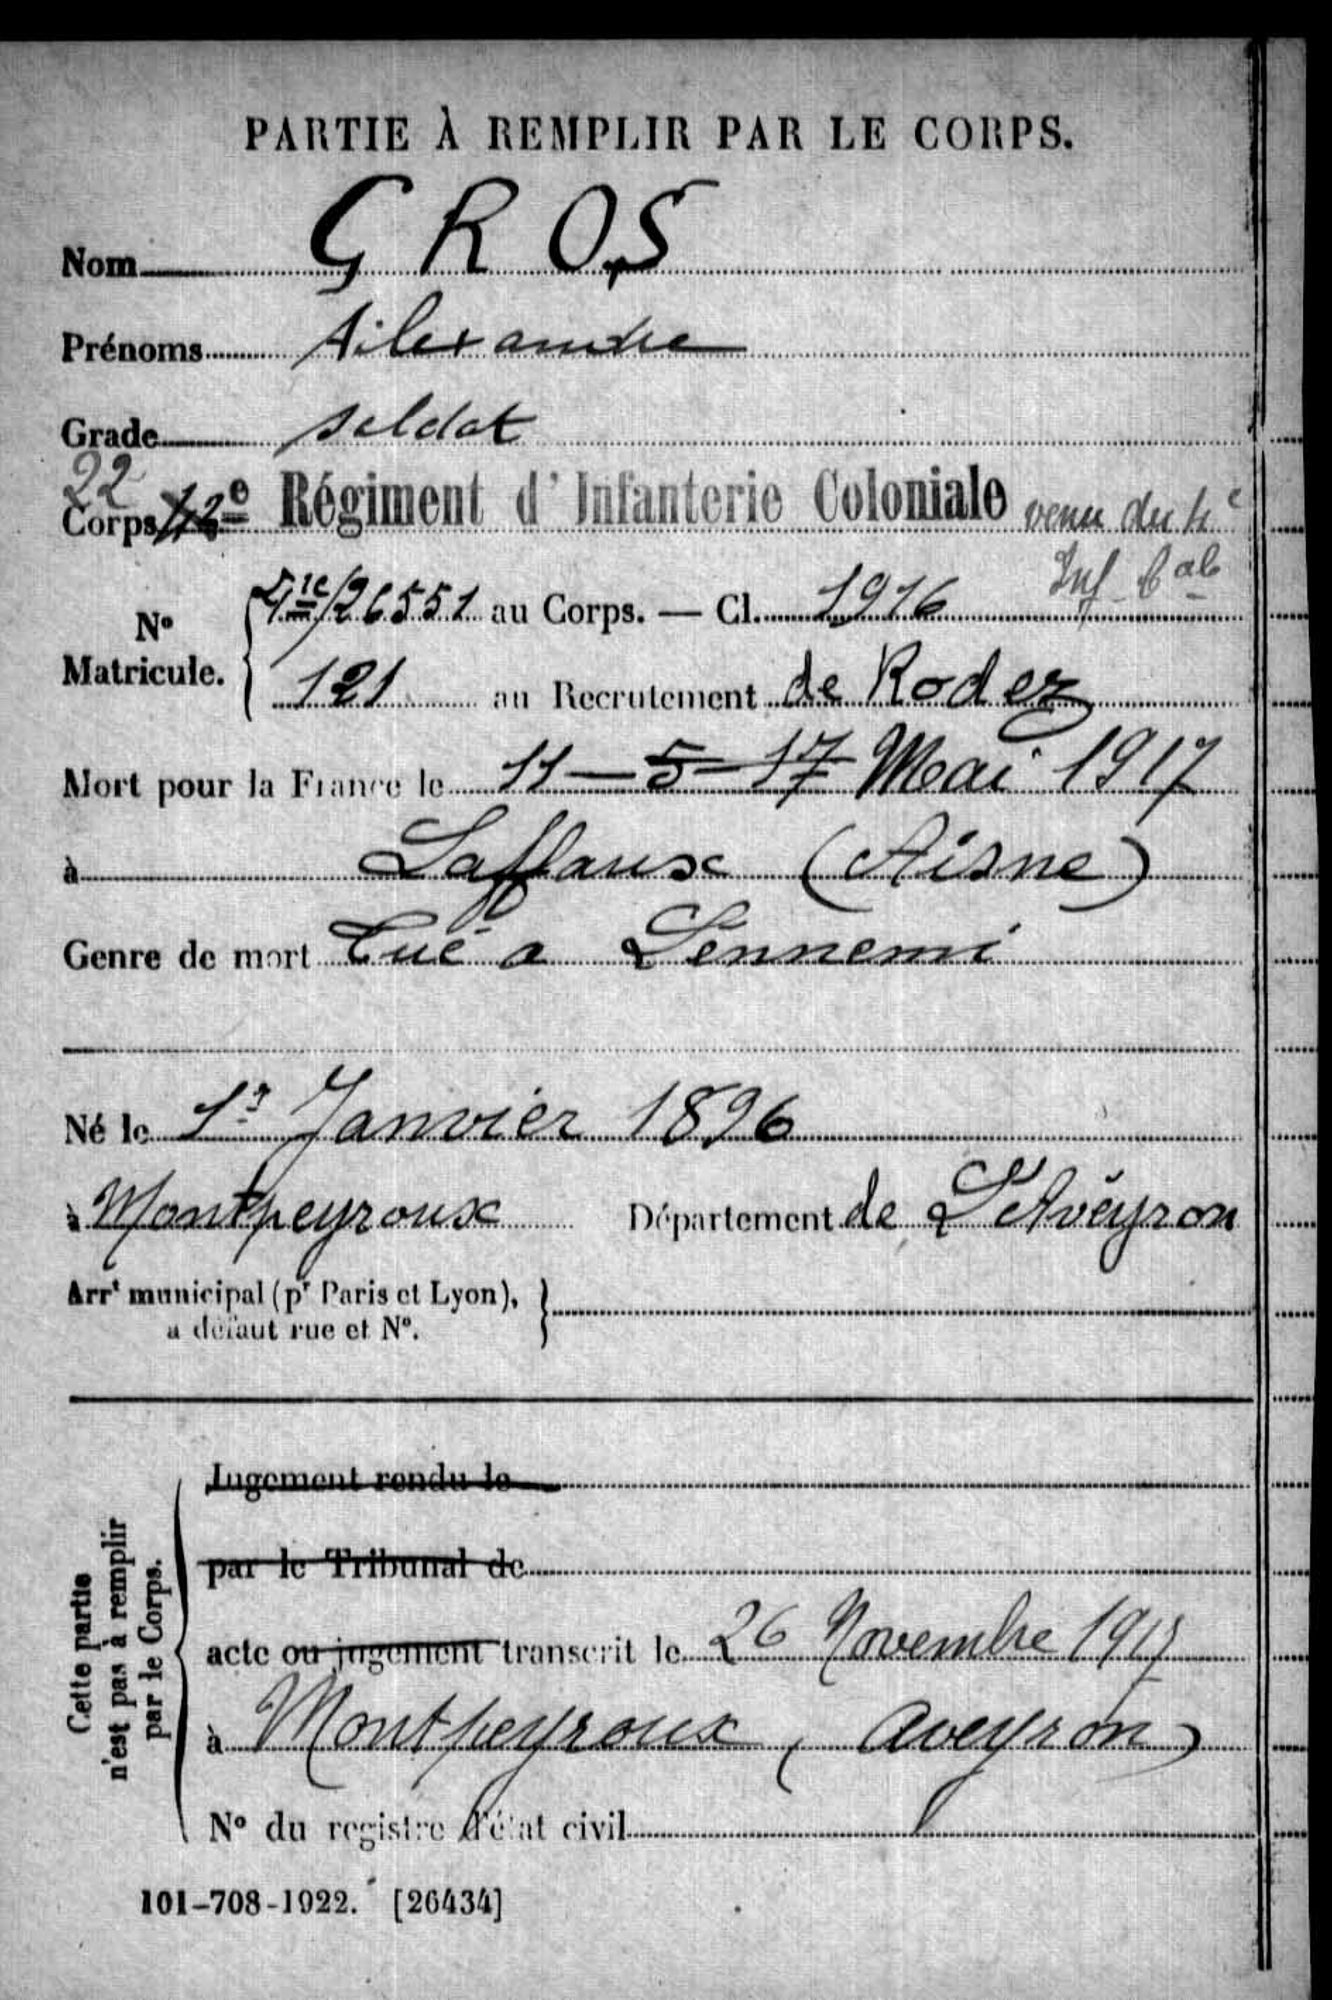 PARTIE À REMPLIR PAR LE CORPS.
Nom GROS
Prénoms Ailexandre
Grade soldat
22
Corps 12e Régiment d'Infanterie Coloniale venu du 4e
Inf. Cale
No Matricule. 4ie/26551 au Corps. — Cl. 1916
121 au Recrutement de Rodez
Mort pour la France le 11 — 5 - 17 Mai 1917
à Laffaux (Aisne)
Genre de mort Tué a Lennemi
Né le 1er Janvier 1896
à Montpeyroux Département de L'Avéyron
Arrt municipal (pr Paris et Lyon),
a défaut rue et No.
Cette partie
n'est pas à remplir
par le Corps.
Jugement rendu le
par le Tribunal de
acte ou jugement transcrit le 26 Novembre 1917
à Montpeyroux (Aveyron)
No du registre d'état civil
101-708-1922. [26434]